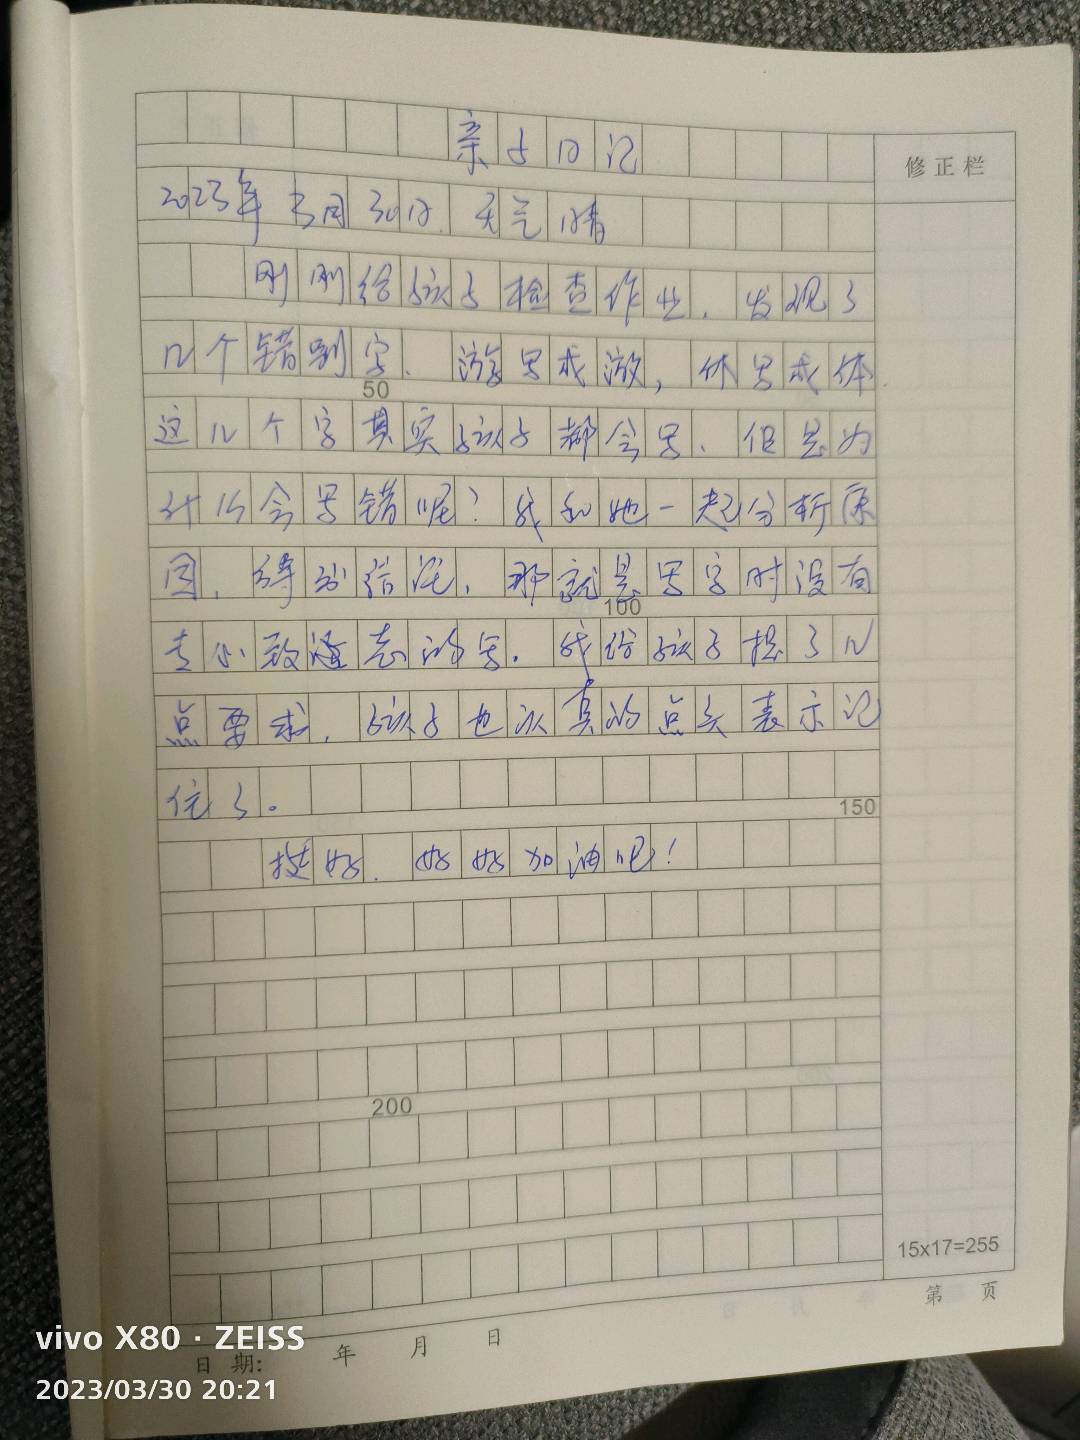 亲子日记
修正栏
2023年3月30日.天气晴
刚刚给孩子检查作业.发现了
几个错别字.游写成激,休写成体.
50
这几个字其实孩子都会写.但是为
什么会写错呢?我和她一起分析原
因.得出结论.那就是写字时没有
100
专心致志的写.我给孩子提了几
点要求.孩子也认真的点头表示记
住了。
150
挺好.好好加油吧!
200
15x17=255
第 页
日期: 年 月 日
vivo X80 · ZEISS
2023/03/30 20:21